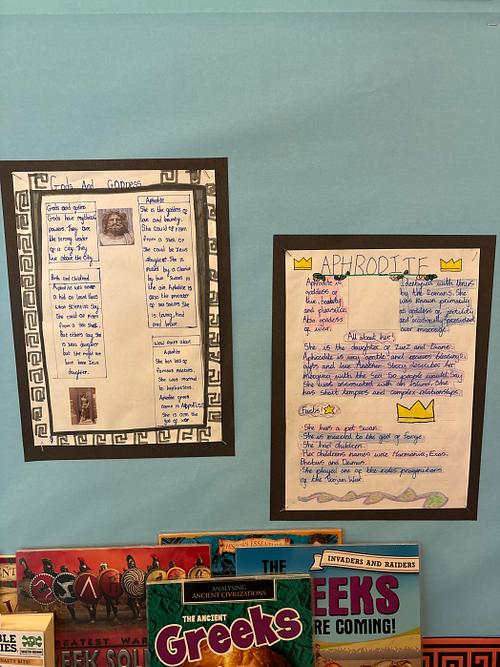 Gods And Goddess
Gods and goddess
Gods have mythical
powers. They are
the strong leader
of a city. They
live above the city.
Birth and childhood
Aphrodite was never
a kid or least that's
what scientists say.
She could of risen
from a sea shell.
But others say she
is Zeus daughter
but she might have
been been Zeus
daughter.
Aphrodite
She is the goddess of
love and beauty.
She could of risen
from a shell or
She could be Zeus
daughter. She is
in the air. Aphrodite is
also the protector
of sea sailors. She
is loving, kind
and brave.
more about
Aphrodite
She has lots of
famous
She was married
to hephaestus.
Aphrodite greek
name is
She is also the
god of war
APHRODITE
Aphrodite is
goddess of
love, beauty
and pleasure.
Also goddess
of war.
Identified with Venus
by the Romans. She
was known primarily
as goddess of fertility
and occasionally presided
over marriage.
All about her!
She is the daughter of Zues and Dione.
Aphrodite is very gentle and
gifts and love. Another story describes her
She was associated with an island. She
has short tempers and complex relationships.
Facts
She has a pet swan.
She is married to the god of forge.
She had children.
Her childrens names were Harmonia, Eros,
Phobus and Deimus.
She played one of the roles
of the Trojan War.
ANALYSING
ANCIENT CIVILIZATIONS
THE ANCIENT
Greeks
INVADERS AND RAIDERS
THE
EEKS
RE COMING!
REATEST WAR
EEK SOL